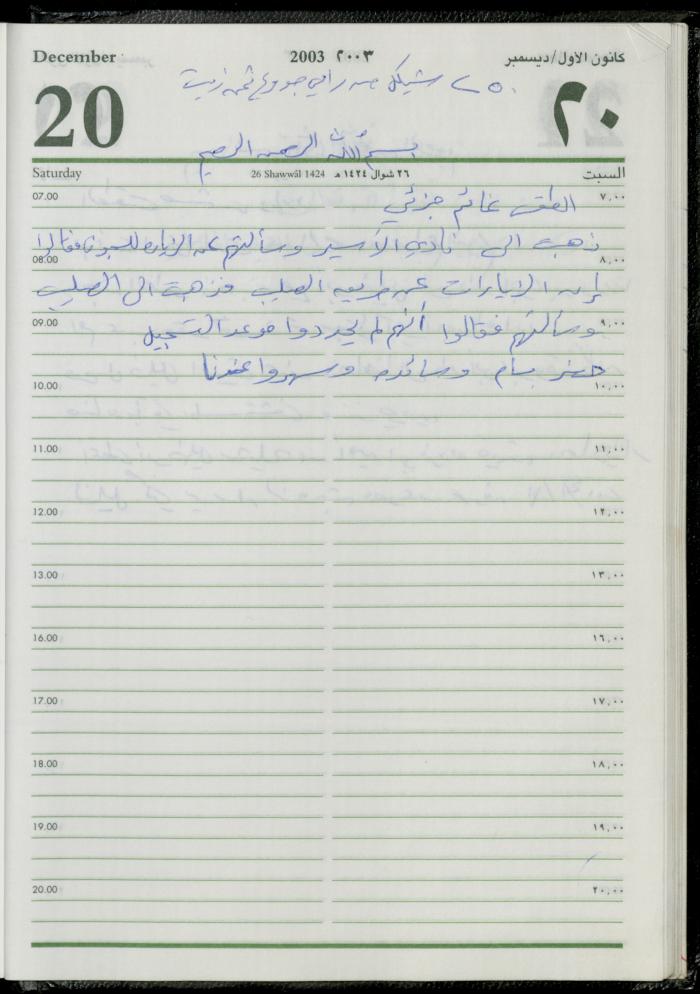 December 2003 ٢٠٠٣ كانون الأول/ديسمبر
٢٥٠ شيكل من رامي جدوع ثمن زيت
20 ٢٠
بسم الله الرحمن الرحيم
Saturday 26 Shawwâl 1424 ٢٦ شوال ١٤٢٤ هـ السبت
07.00 الطقس غائم جزئي ٧,٠٠
ذهبت الى نادي الأسير وسألتهم عن الزيارة للسجون فقالوا
08.00 ٨,٠٠
إن الزيارات عن طريق الصليب فذهبت الى الصليب
09.00 وسألتهم فقالوا أنهم لم يحددوا موعد التسجيل ٩,٠٠
حضر بسام وسائده وسهروا عندنا
10.00 ١٠,٠٠
11.00 ١١,٠٠
12.00 ١٢,٠٠
13.00 ١٣,٠٠
16.00 ١٦,٠٠
17.00 ١٧,٠٠
18.00 ١٨,٠٠
19.00 ١٩,٠٠
20.00 ٢٠,٠٠